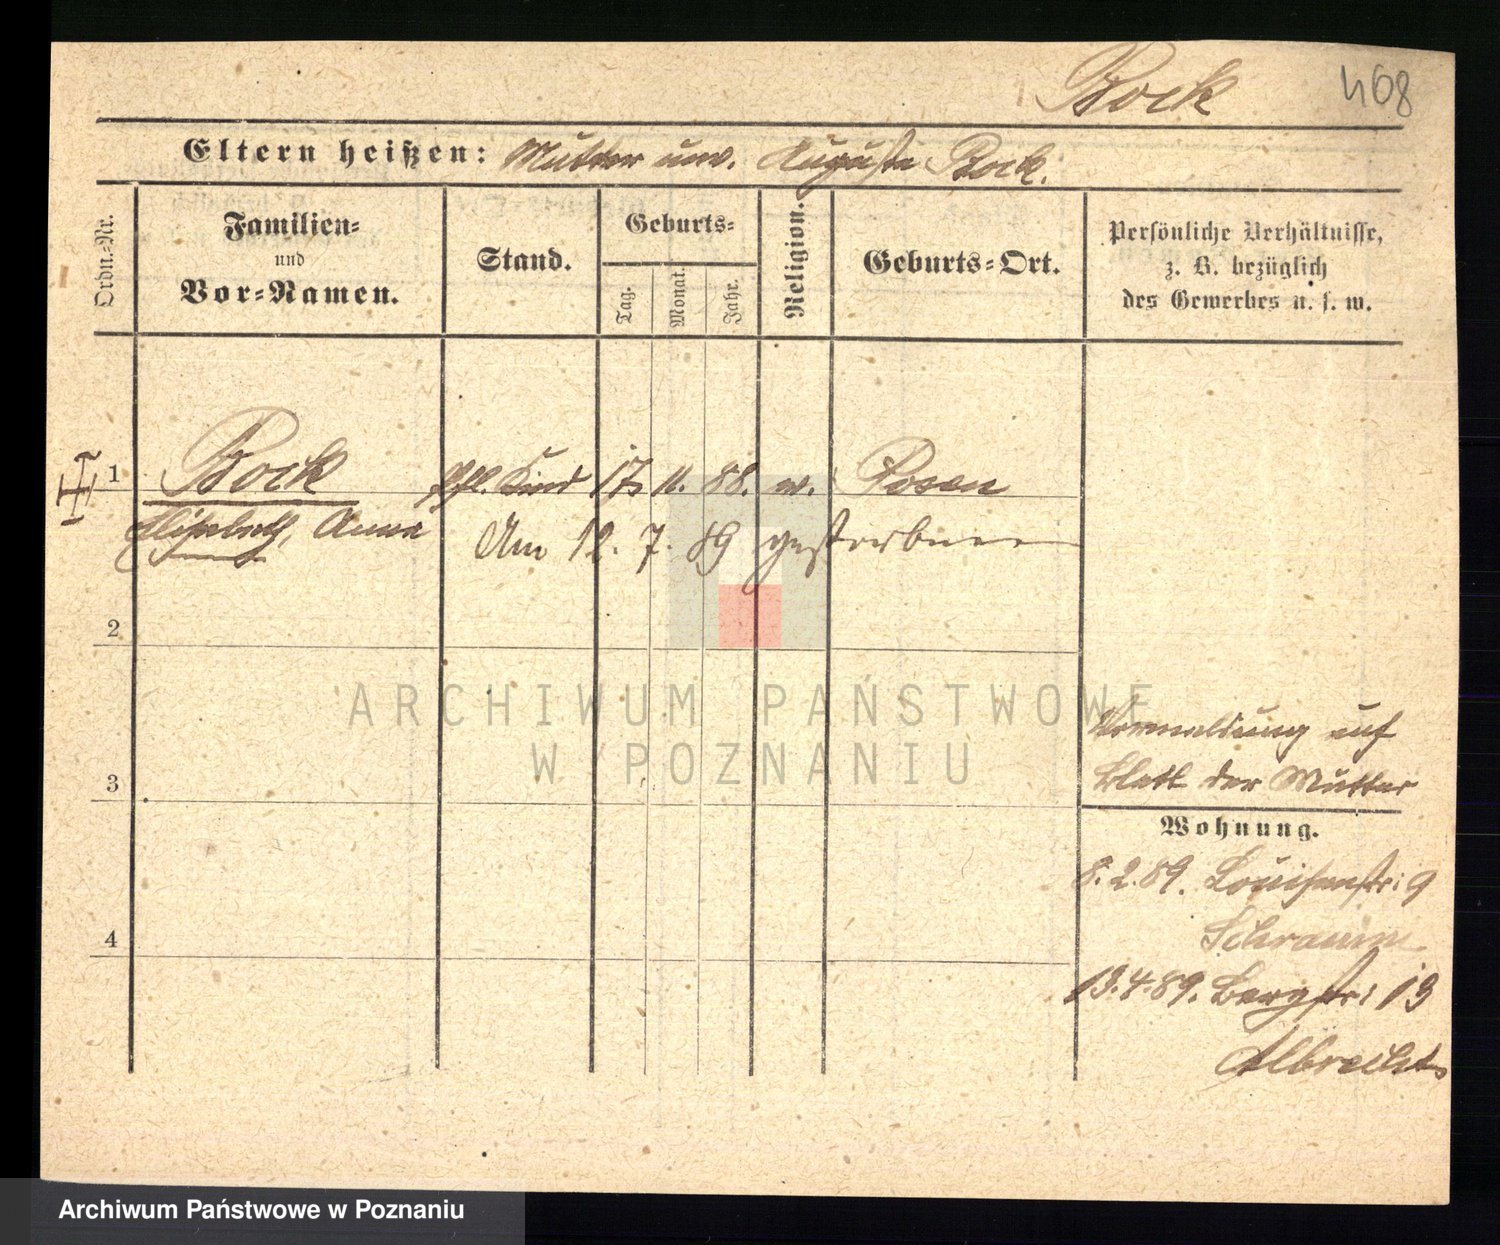 Bock
468
Eltern heißen: Mutter unv. Auguste Bock.
Ordn.-Nr.
Familien-
und
Vor-Namen.
Stand.
Geburts-
Tag.
Monat.
Jahr.
Religion.
Geburts-Ort.
Persönliche Verhältnisse,
z. B. bezüglich
des Gewerbes u. s. w.
1 Bock pfl. Kind 17 11. 88. ev. Posen
Elisabeth, Anna
Am 12. 7. 89 gestorben
2
3
4
ARCHIWUM PAŃSTWOWE
W POZNANIU
auf
Blatt der Mutter
Wohnung.
8.2.89. Louisenstr: 9
Schramm
13.4.89. Bergstr: 13
Albrecht
Archiwum Państwowe w Poznaniu